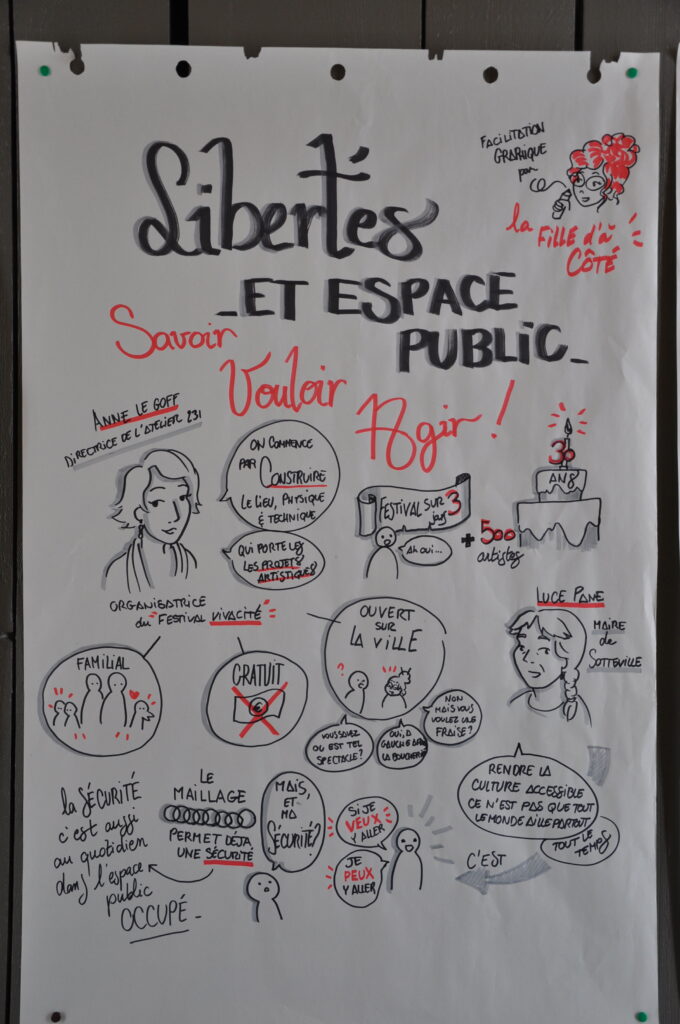 Libertés
_ET ESPACE
PUBLIC_
FACILITATION
GRAPHIQUE
par
la FILLE d'à
CÔTÉ
Savoir
Vouloir
Agir !
ANNE LE GOFF
DIRECTRICE DE L'ATELIER 231
ON COMMENCE
PAR CONSTRUIRE
LE LIEU, PHYSIQUE
& TECHNIQUE
QUI PORTE LES
LES PROJETS
ARTISTIQUES
FESTIVAL SUR 3
jours
AH OUI...
+ 500
artistes
30
ANS
ORGANISATRICE
du FESTIVAL VIVACITÉ
FAMILIAL
GRATUIT
€
OUVERT
SUR
LA VILLE
?
VOUS SAVEZ
OÙ EST TEL
SPECTACLE?
OUI, À
GAUCHE
LA BOUCHERIE
NON
MAIS VOUS
VOULEZ UNE
FRAISE?
LUCE PANE
MAIRE
de
SOTTEVILLE
RENDRE LA
CULTURE ACCESSIBLE
CE N'EST PAS QUE TOUT
LE MONDE AILLE PARTOUT
TOUT LE
TEMPS
C'EST
SI JE
VEUX
Y ALLER
JE
PEUX
Y ALLER
MAIS,
ET
MA
SÉCURITÉ?
LE
MAILLAGE
PERMET DÉJÀ
UNE SÉCURITÉ
la SÉCURITÉ
c'est aussi
au quotidien
dans l'espace
public
OCCUPÉ_